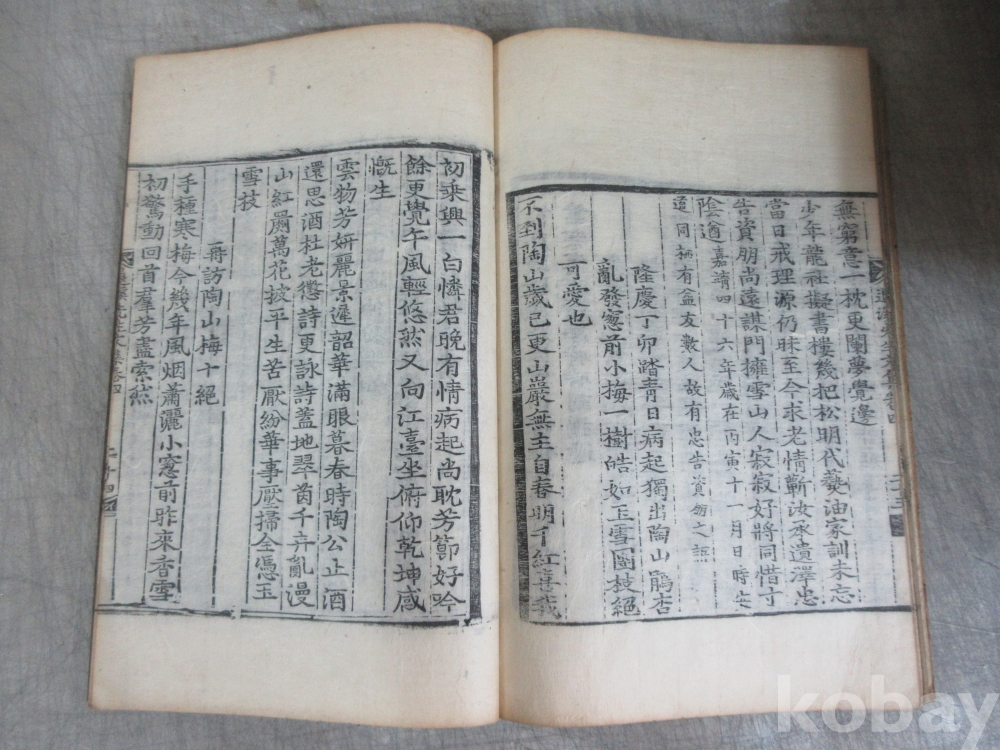 退溪先生文集卷四
無窮意一枕更闌夢覺邊
少年龍社擬書樓幾把松明代爇油家訓未忘
當日戒理源仍昧至今求老情蘄汝承遺澤忠
告資朋尚遠謀門擁雪山人寂寂好將同惜寸
陰遒嘉靖四十六年歲在丙寅十一月日時安
道同栖有益友數人故有忠告資之語
隆慶丁卯踏青日病起獨出陶山鵑杏
亂發窓前小梅一樹皓如玉雪團枝絕
可愛也
不到陶山歲已更山巖無主自春明千紅
初乘興一白憐君晚有情病起尚耽芳節好吟
餘更覺午風輕悠然又向江臺坐俯仰乾坤感
慨生
雲物芳妍麗景遲韶華滿眼暮春時陶公止酒
還思酒杜老懲詩更詠詩蓋地翠茵千卉亂漫
山紅罽萬花披平生苦厭紛華事壓掃全憑玉
雪枝
再訪陶山梅十絕
手種寒梅今幾年風烟蕭灑小窓前昨來香雪
初驚動回首羣芳盡索然
退溪先生文集卷四
二十四
kobay